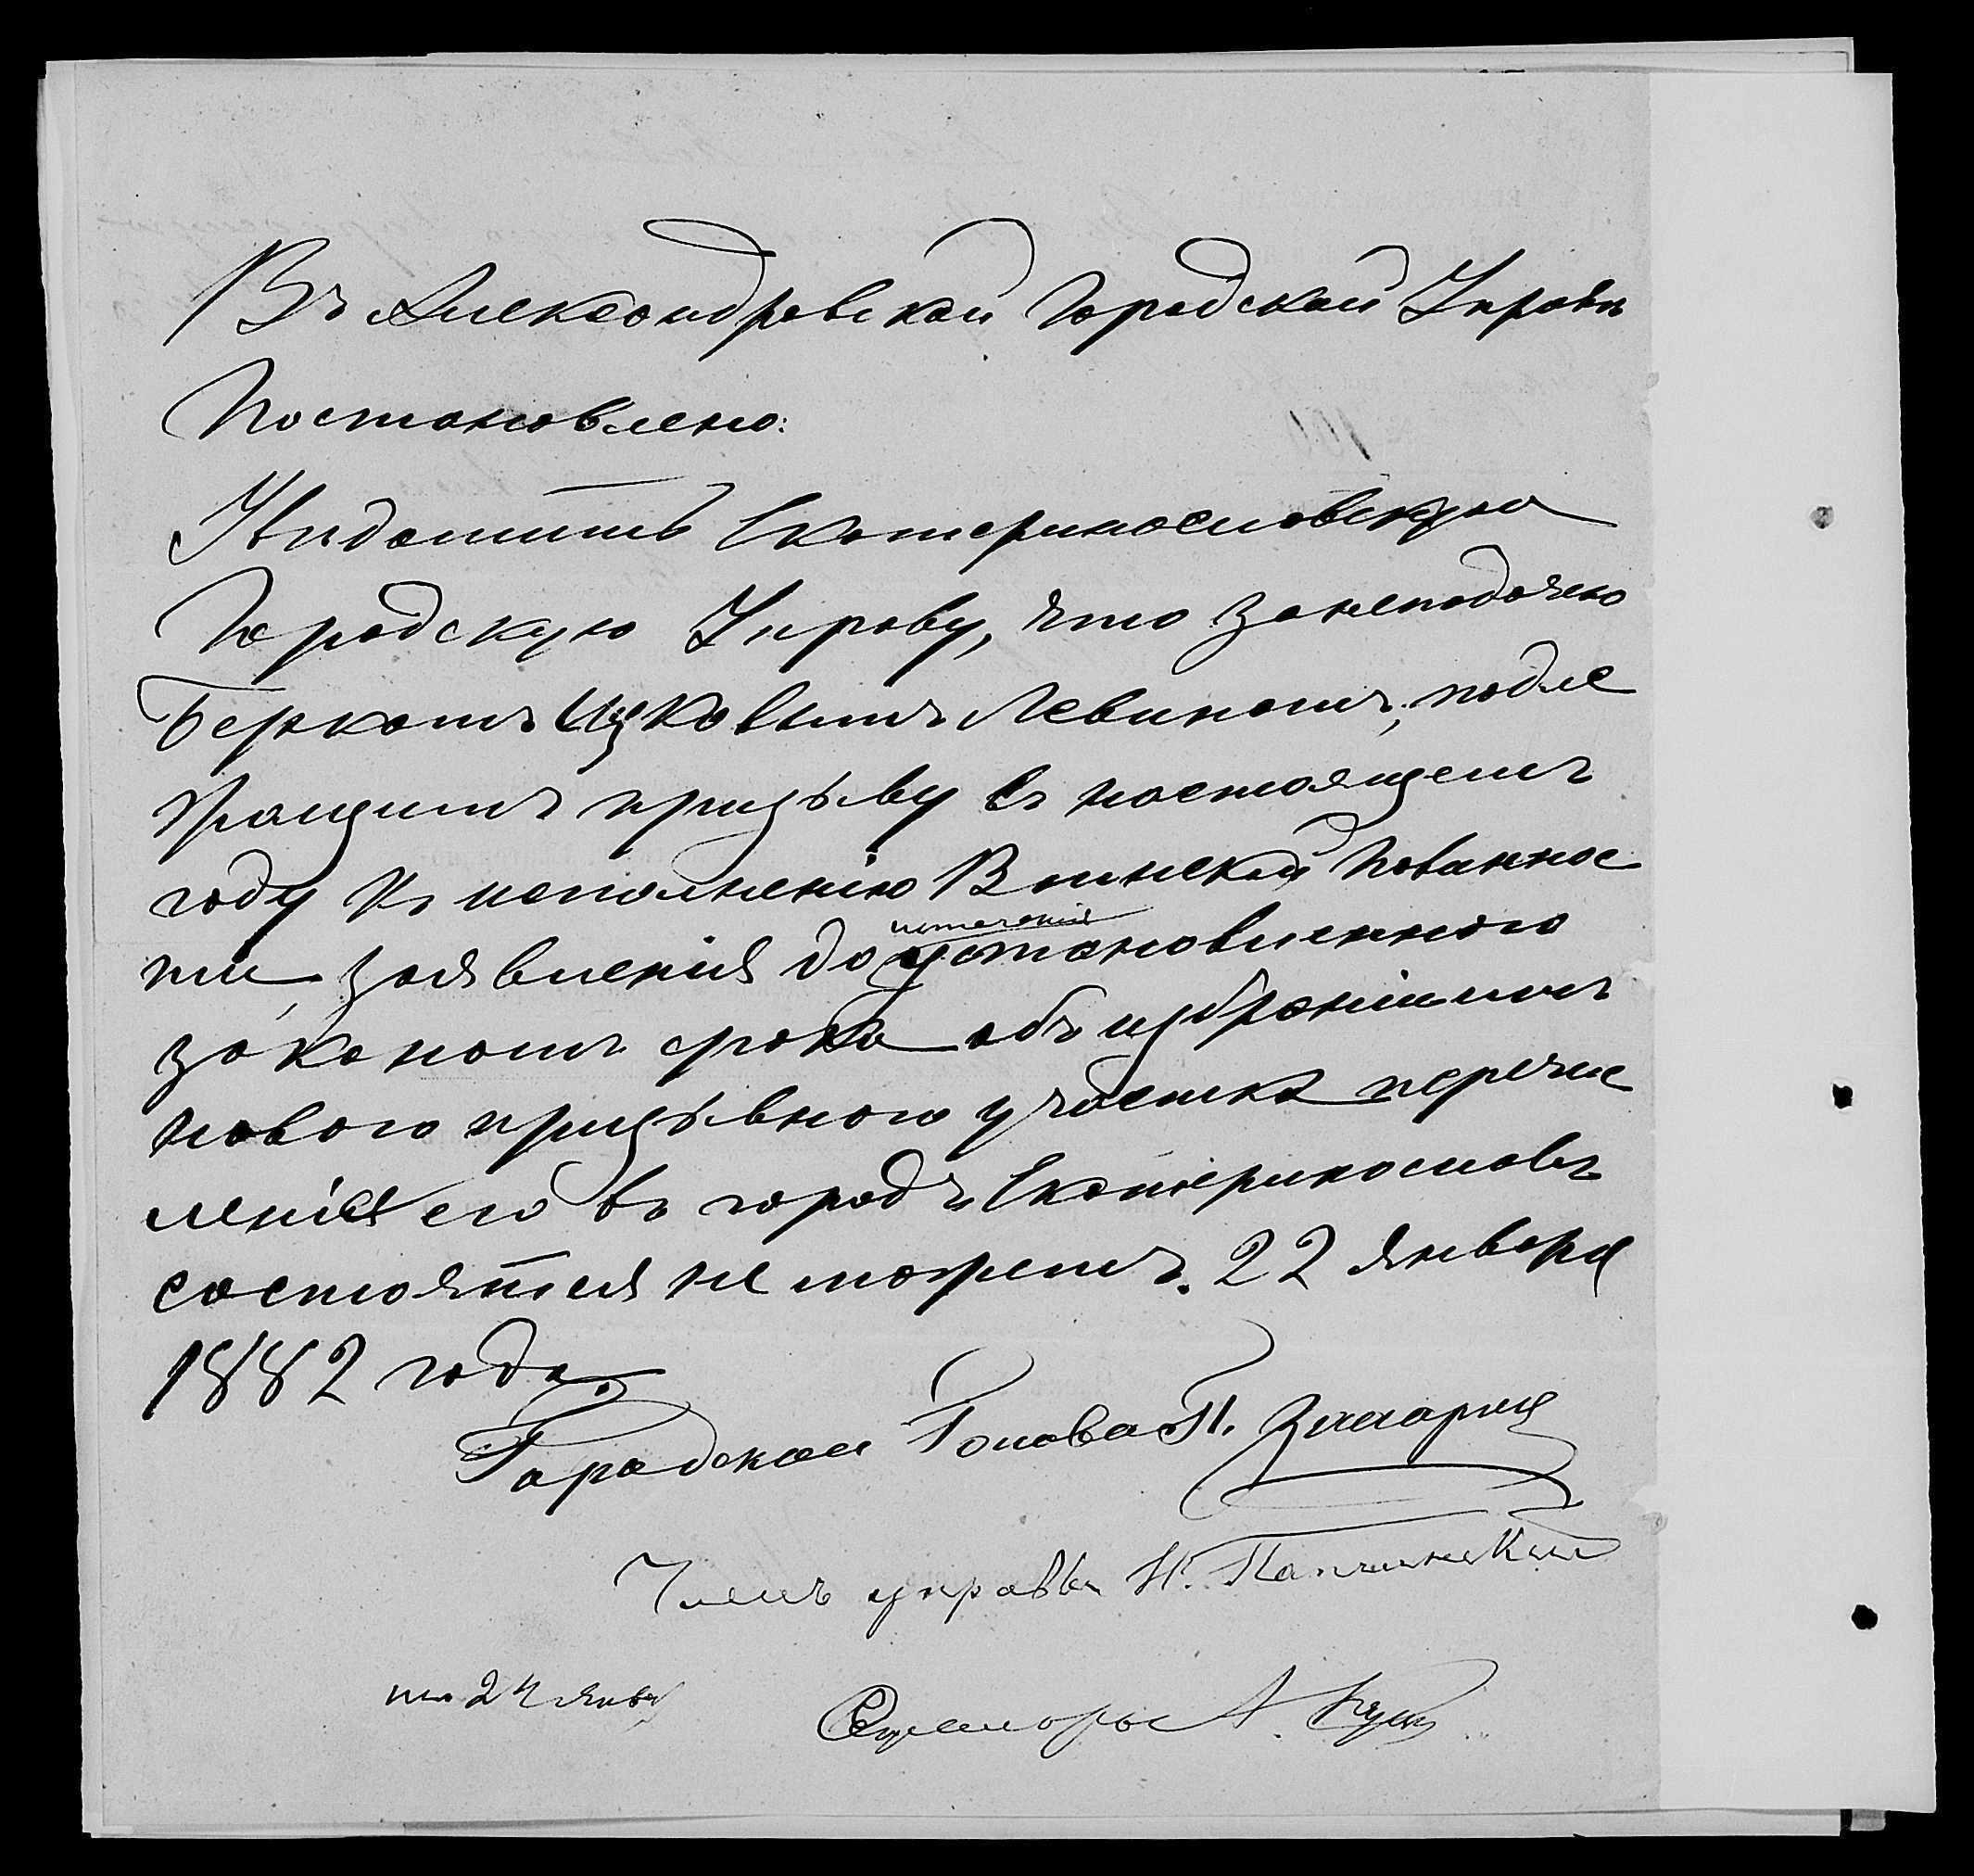 Въ Александровской Городской Управѣ
Постановлено:
Увѣдомить Екатеринославскую
Городскую Управу, что за неподачею
Беркомъ Ицковымъ Левинымъ, подле
жащимъ призыву въ настоящемъ
году къ исполненію Воинской Повиннос
ти, заявленія до истеченія установленного
закономъ срока объ избраніи имъ
нового призывного участка перечис
ленія его въ городъ Екатеринославъ
состоятся не можетъ. 22 Января
1882 года.
Городской Голова П. Захарин
Членъ управы К. Папчинский
Секретарь А.
исп 24 Янвя